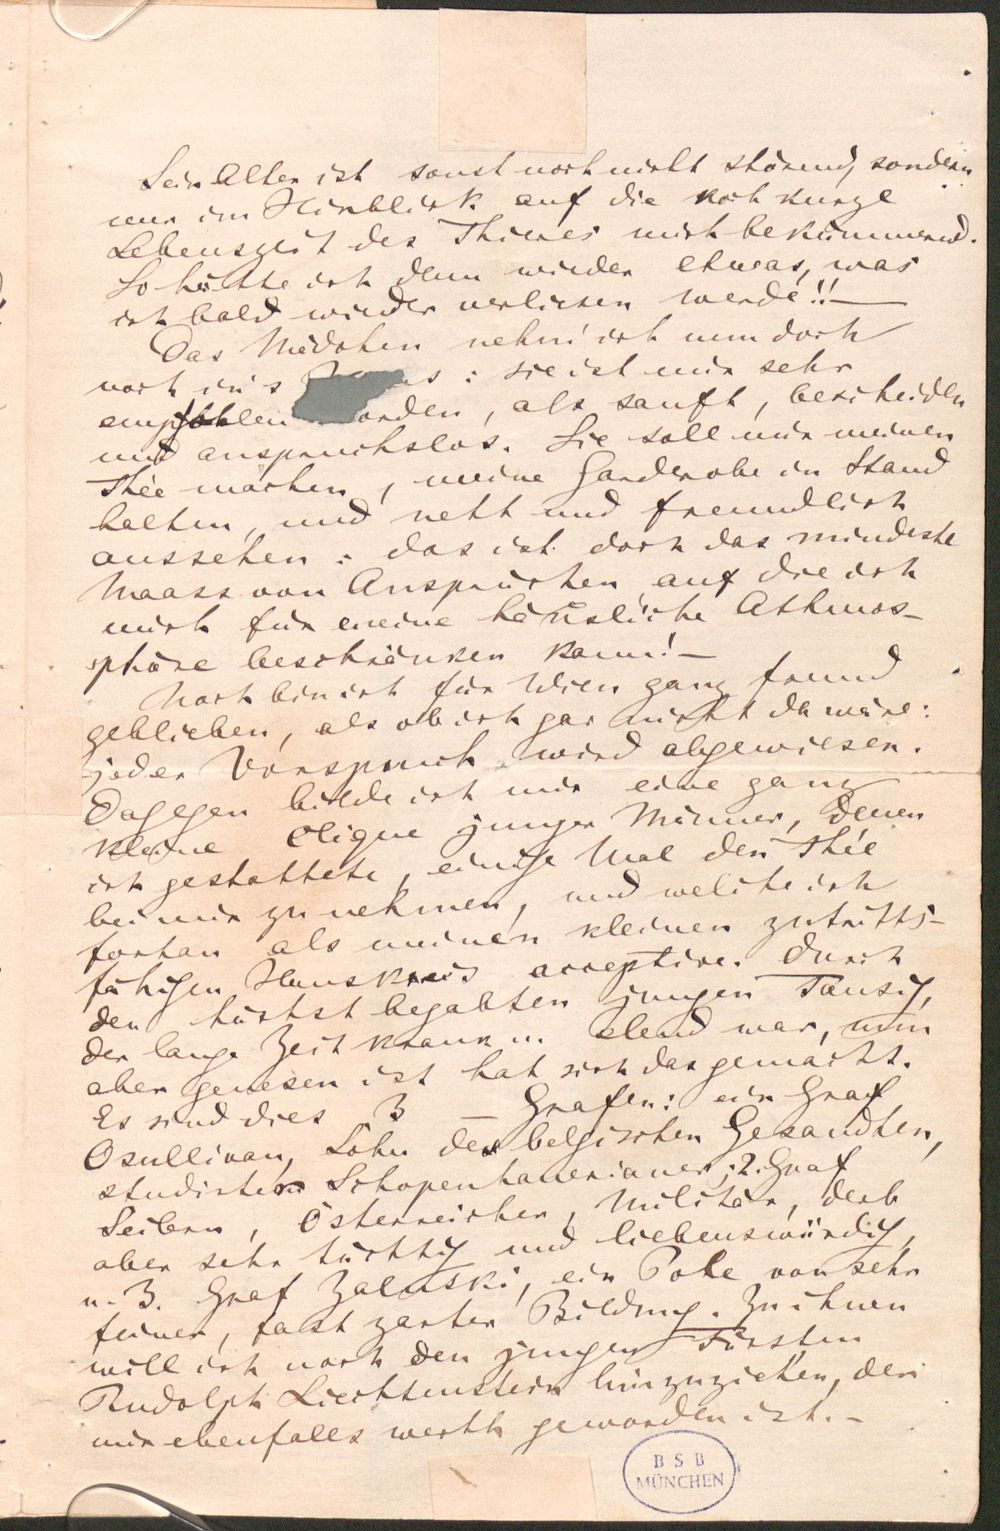 Sein Alter ist sonst noch nicht störend, sondern
nur im Hinblick auf die noch kurze
Lebenszeit des Thieres mich bekümmernd.
So hätte ich denn wieder etwas, was
ich bald wieder verlieren werde!! —
Das Mädchen nehm' ich nun doch
noch in's : sie ist mir sehr
empfohlen orden, als sanft, bescheiden
und anspruchslos. Sie soll mir meinen
Thée machen, meine Garderobe in Stand
halten, und nett und freundlich
aussehen: das ist doch das mindeste
Maass von Ansprüchen, auf die ich
mich für meine häusliche Athmos-
phäre beschränken kann! —
Noch bin ich für Wien ganz fremd
geblieben, als ob ich gar nicht da wäre:
jeder Vorspruch wird abgewiesen.
Dagegen bilde ich mir eine ganz
kleine Clique junger Männer, denen
ich gestattete, einige Mal den Thée
bei mir zu nehmen, und welche ich
fortan als meinen kleinen zutritts-
fähigen Hauskreis acceptire. Durch
den höchst begabten jungen Tausig,
der lange Zeit krank u. elend war, nun
aber genesen ist hat sich das gemacht.
Es sind dies 3 — Grafen: ein Graf
Osullivan, Sohn des belgischen Gesandten,
studirter Schopenhauerianer; 2. Graf
Seilern, Österreicher, Militär, derb
aber sehr tüchtig und liebenswürdig,
u. 3. Graf Zaluski, ein Pole von sehr
feiner, fast zarter Bildung. Zu ihnen
will ich noch den jungen Fürsten
Rudolph Liechtenstein hinzuziehen, der
mir ebenfalls werth geworden ist. —
BSB
MÜNCHEN